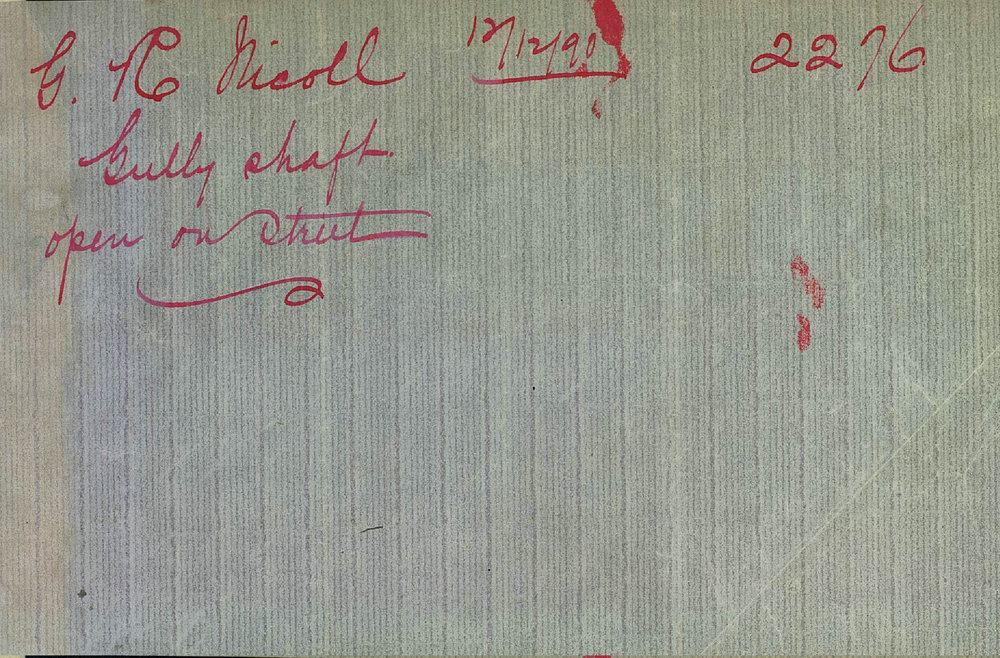 G. R Nicoll 12/12/90 2276
Gully shaft.
open on street